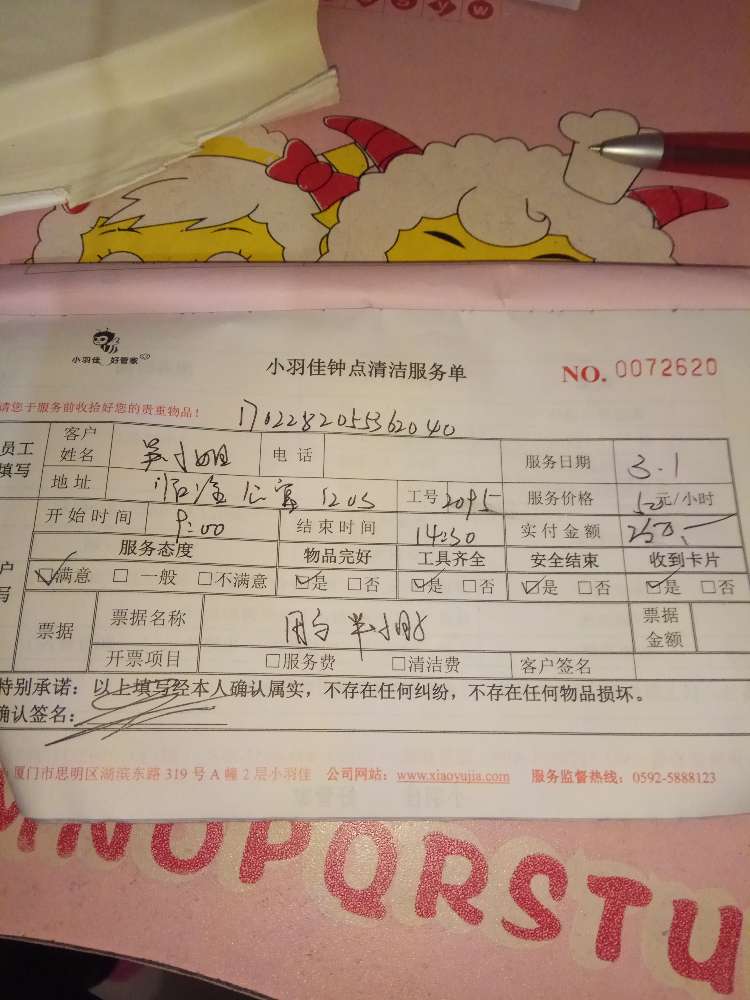 y w
小羽佳 好管家
小羽佳钟点清洁服务单
NO. 0072620
请您于服务前收拾好您的贵重物品！
1702282055362040
员工填写 客户姓名 吴小姐 电话 服务日期 3.1
地址 1205 工号 2095 服务价格 50元/小时
开始时间 9:00 结束时间 14:30 实付金额 250.-
服务态度 物品完好 工具齐全 安全结束 收到卡片
☑满意 □一般 □不满意 ☑是 □否 ☑是 □否 ☑是 □否 ☑是 □否
户写 票据 票据名称 票据金额
开票项目 □服务费 □清洁费 客户签名
特别承诺：以上填写经本人确认属实，不存在任何纠纷，不存在任何物品损坏。
确认签名：
厦门市思明区湖滨东路 319 号 A 幢 2 层小羽佳 公司网站：www.xiaoyujia.com 服务监督热线：0592-5888123
MNOPQRSTU